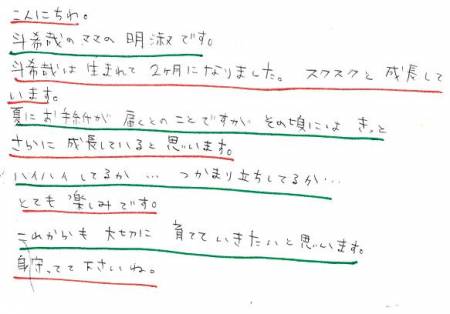 こんにちわ。
斗希哉のママの 明淑です。
斗希哉は 生まれて 2ヶ月になりました。 スクスクと 成長して
います。
夏に お手紙が 届くとの ことですが その頃には きっと
さらに 成長していると 思います。
ハイハイ してるか … つかまり立ちしてるか…
とても 楽しみです。
これからも 大切に 育てて いきたいと思います。
見守ってて 下さいね。